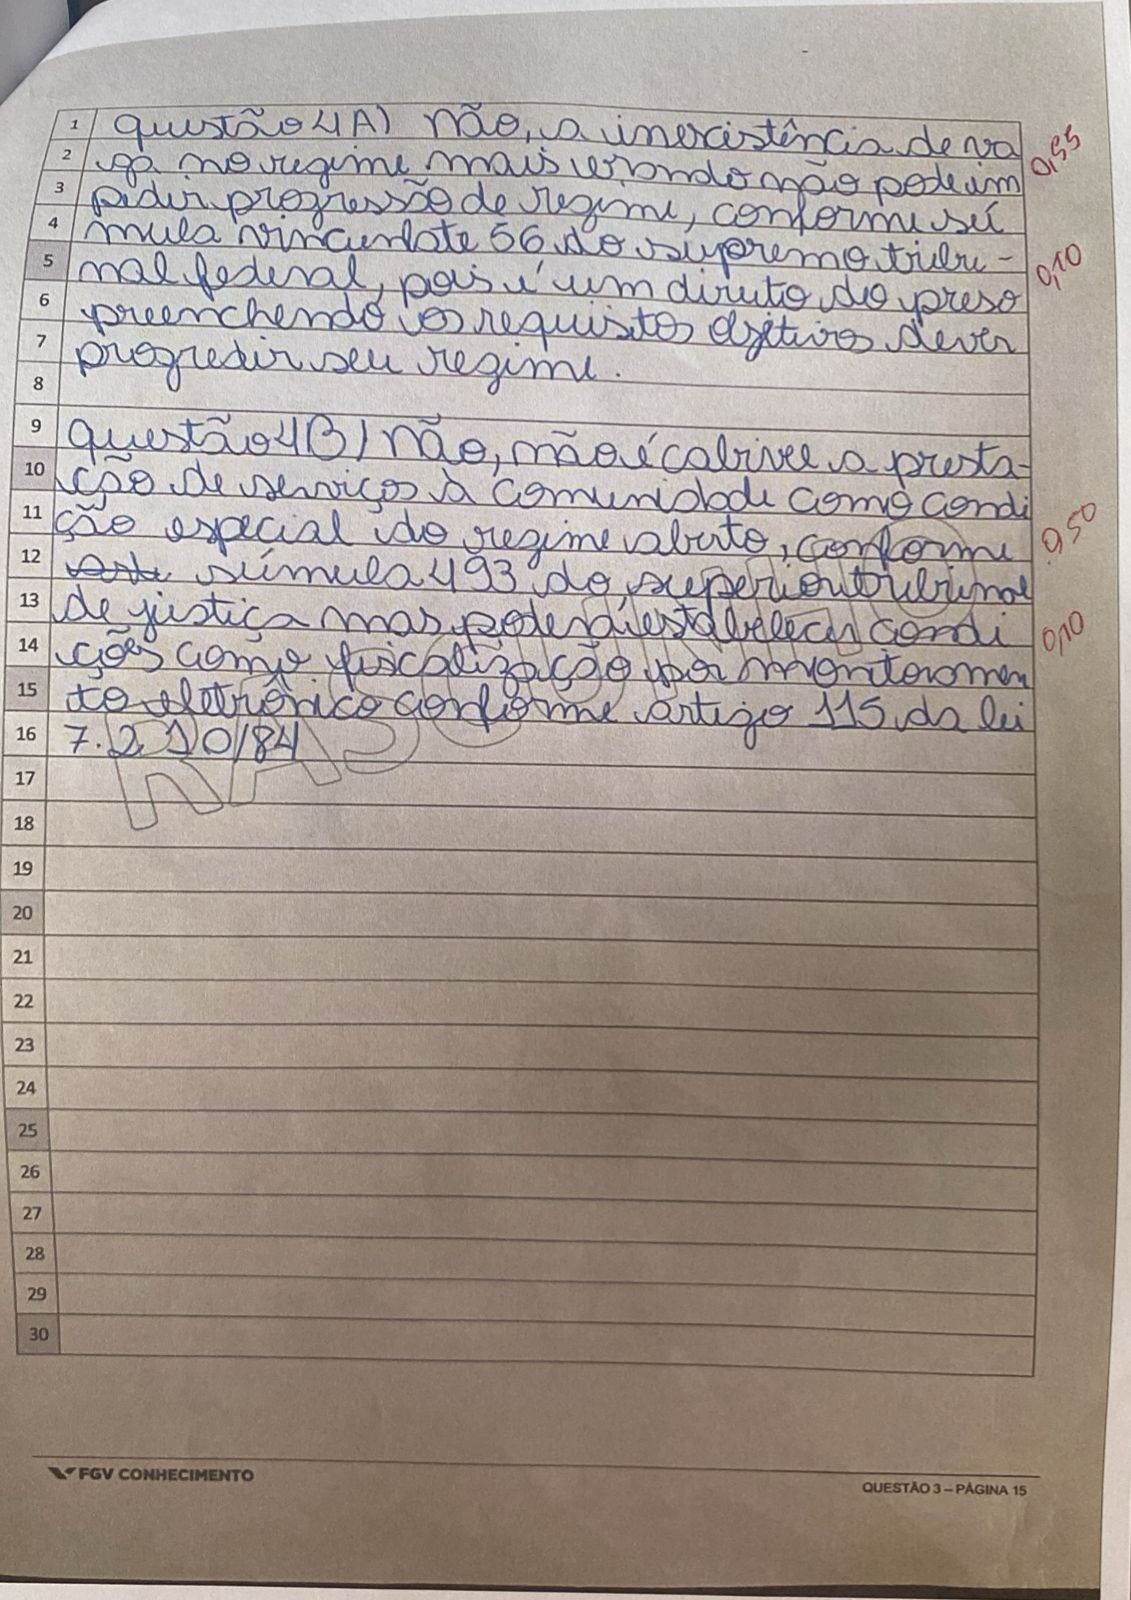 1 questão 4 A) não, a inexistência de va 0,55
2 ga no regime mais brando não pode im
3 pedir progressão de regime, conforme sú
4 mula vinculate 56 do supremo tribu- 0,10
5 nal federal, pois é um direito do preso
6 preenchendo os requisitos ojetivos dever
7 progredir seu regime.
8
9 questão 4B) não, não é cabivel a presta-
10 ção de serviços à comunidade como condi
11 ção especial do regime aberto, conforme 0,50
12 súmula 493 do superior tribunal
13 de justiça mas poderá estabelecer condi 0,10
14 ções como fiscalização por monitoramen
15 to eletrônico conforme artigo 115 da lei
16 7.210/84
17
18
19
20
21
22
23
24
25
26
27
28
29
30
FGV CONHECIMENTO
QUESTÃO 3 – PÁGINA 15